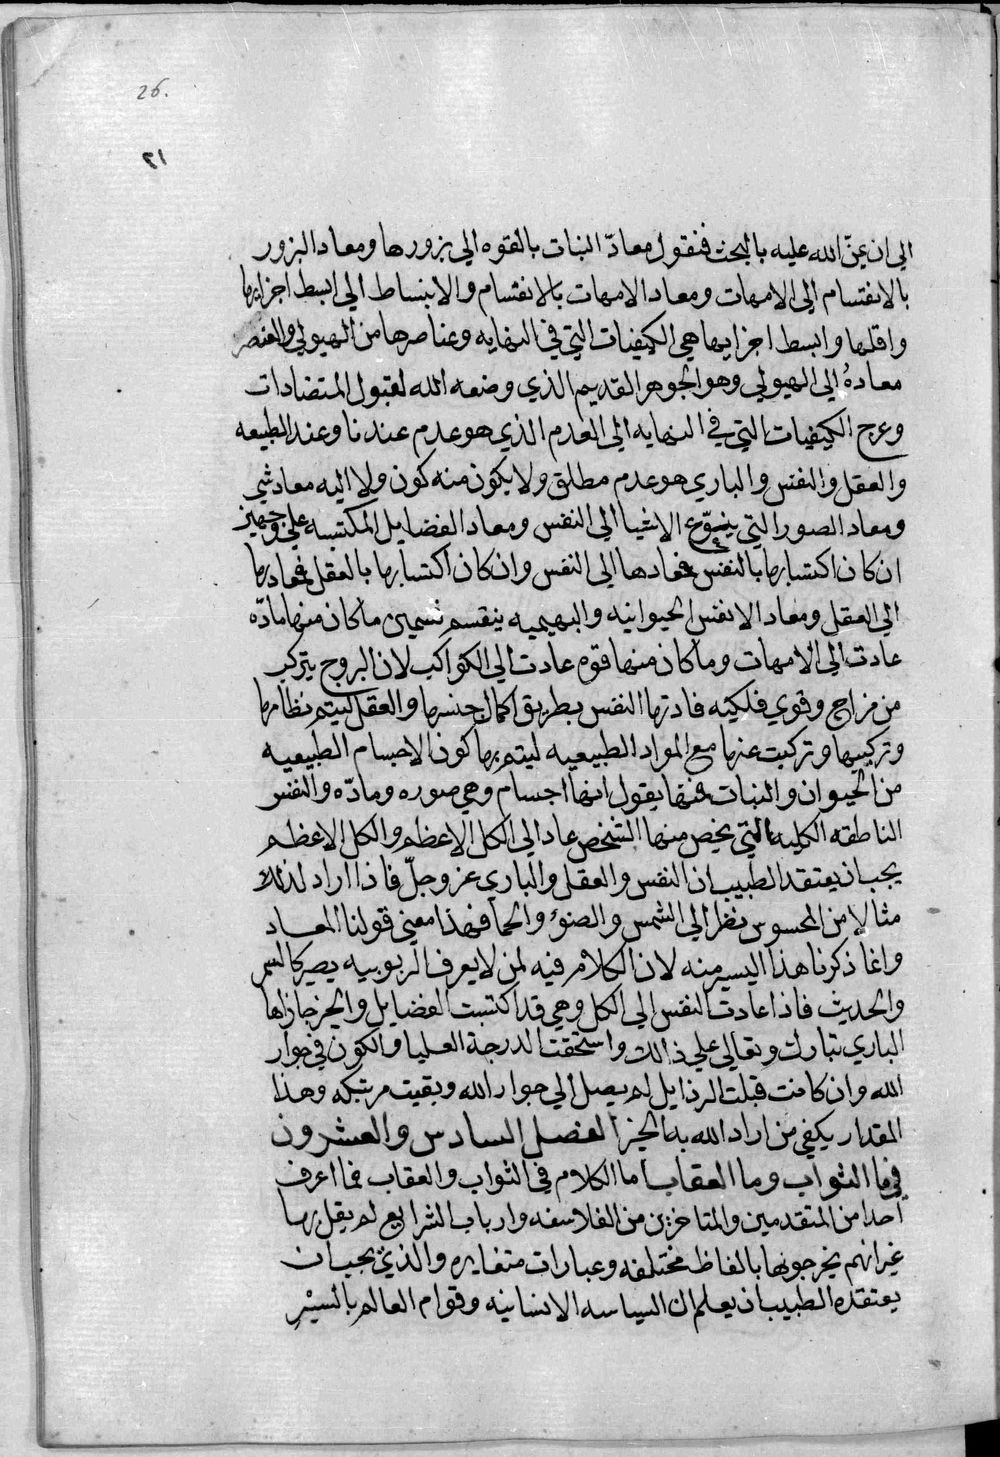 26.
٢١
الي ان يمنّ الله عليه بالبحث فنقول معادّ النبات بالقوه الي بزورها ومعاد البزور
بالانقسام الي الامهات ومعاد الامهات بالانقسام والانبساط الي ابسط اجزايها
واقلها وابسط اجزايها هي الكيفيات التي في النهايه وعناصرها من الهيولي والعنصر
معادهُ الي الهيولي وهو الجوهر القديم الذي وضعه الله لقبول المتضادات
وعرج الكيفيات التي في النهايه الي العدم الذي هو عدم عندنا وعند الطبيعه
والعقل والنفس والباري هو عدم مطلق ولا يكون منه كون ولا اليه معاد شي
ومعاد الصور التي ينوّع الاشيا الي النفس ومعاد الفضايل المكتسبه علي وجهين
ان كان اكتسابها بالنفس فمعادها الي النفس وان كان اكتسابها بالعقل فمعادها
الي العقل ومعاد الانفس الحيوانيه والبهيميه ينقسم قسمين ما كان منها مادّه
عادت الي الامهات وما كان منها قوه عادت الي الكواكب لان الروح يتركب
من مزاج وقوي فلكيه فادتها النفس بطريق اكمال جنسها والعقل ليتم نظامها
وتركيبها وتركبت عنها مع المواد الطبيعيه ليتم بها كون الاجسام الطبيعيه
من الحيوان والنبات فنها يقول انها اجسام وهي صوره ومادّه والنفس
الناطقه الكليه التي يخص منها الشخص عاد الي الكل الاعظم والكل الاعظم
يجب ان يعتقد الطبيب ان النفس والعقل والباري عز وجلّ فاذا اراد لذلك
مثالا من المحسوس نظر الي الشمس والضؤ والحما فهذا معني قولنا المعاد
وانما ذكرنا هذا اليسير منه لان الكلام فيه لمن لا يعرف الربوبيه يصير كالسمر
والحديث فاذا عادت النفس الي الكل وهي قد اكتسبت الفضايل والخير جازاها
الباري تبارك وتعالي علي ذالك واستحقت الدرجة العليا والكون في جوار
الله وان كانت قبلت الرذايل لم يصل الي جوار الله وبقيت مرتبكه وهذا
المقدار يكفي من اراد الله به الخير الفصل السادس والعشرون
في ما الثواب وما العقاب اما الكلام في الثواب والعقاب فما اعرف
احدا من المتقدمين والمتاخرين من الفلاسفه وارباب الشرايع لم يقل بها
غير انهم يخرجونها بالفاظ مختلفه وعبارات متغايره والذي يجب ان
يعتقده الطبيب ان يعلم ان السياسه الانسانيه وقوام العالم بالسير